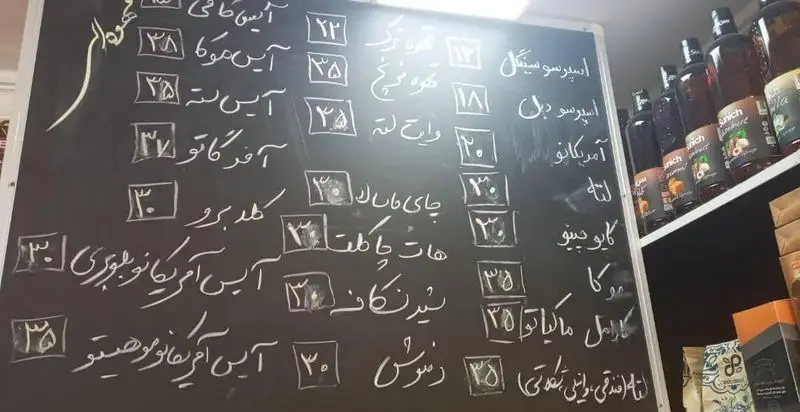 اسپرسو سینگل ۱۲
اسپرسو دبل ۱۸
آمریکانو ۲۰
لته ۳۰
کاپوچینو ۳۰
موکا ۳۵
کارامل ماکیاتو ۳۵
لته (فندقی، وانیلی، شکلاتی) ۳۵
قهوه ترک ۲۲
قهوه فرنچ ۳۵
وایت لته ۳۵
چای ماسالا ۳۰
هات چاکلت ۳۰
شیر نسکافه ۳۰
دمنوش ۳۰
آیس کافی
آیس موکا ۳۸
آیس لته ۳۵
آفوگاتو ۳۷
کلد برو ۳۰
آیس آمریکانو بلوبری ۳۰
آیس آمریکانو موهیتو ۳۵